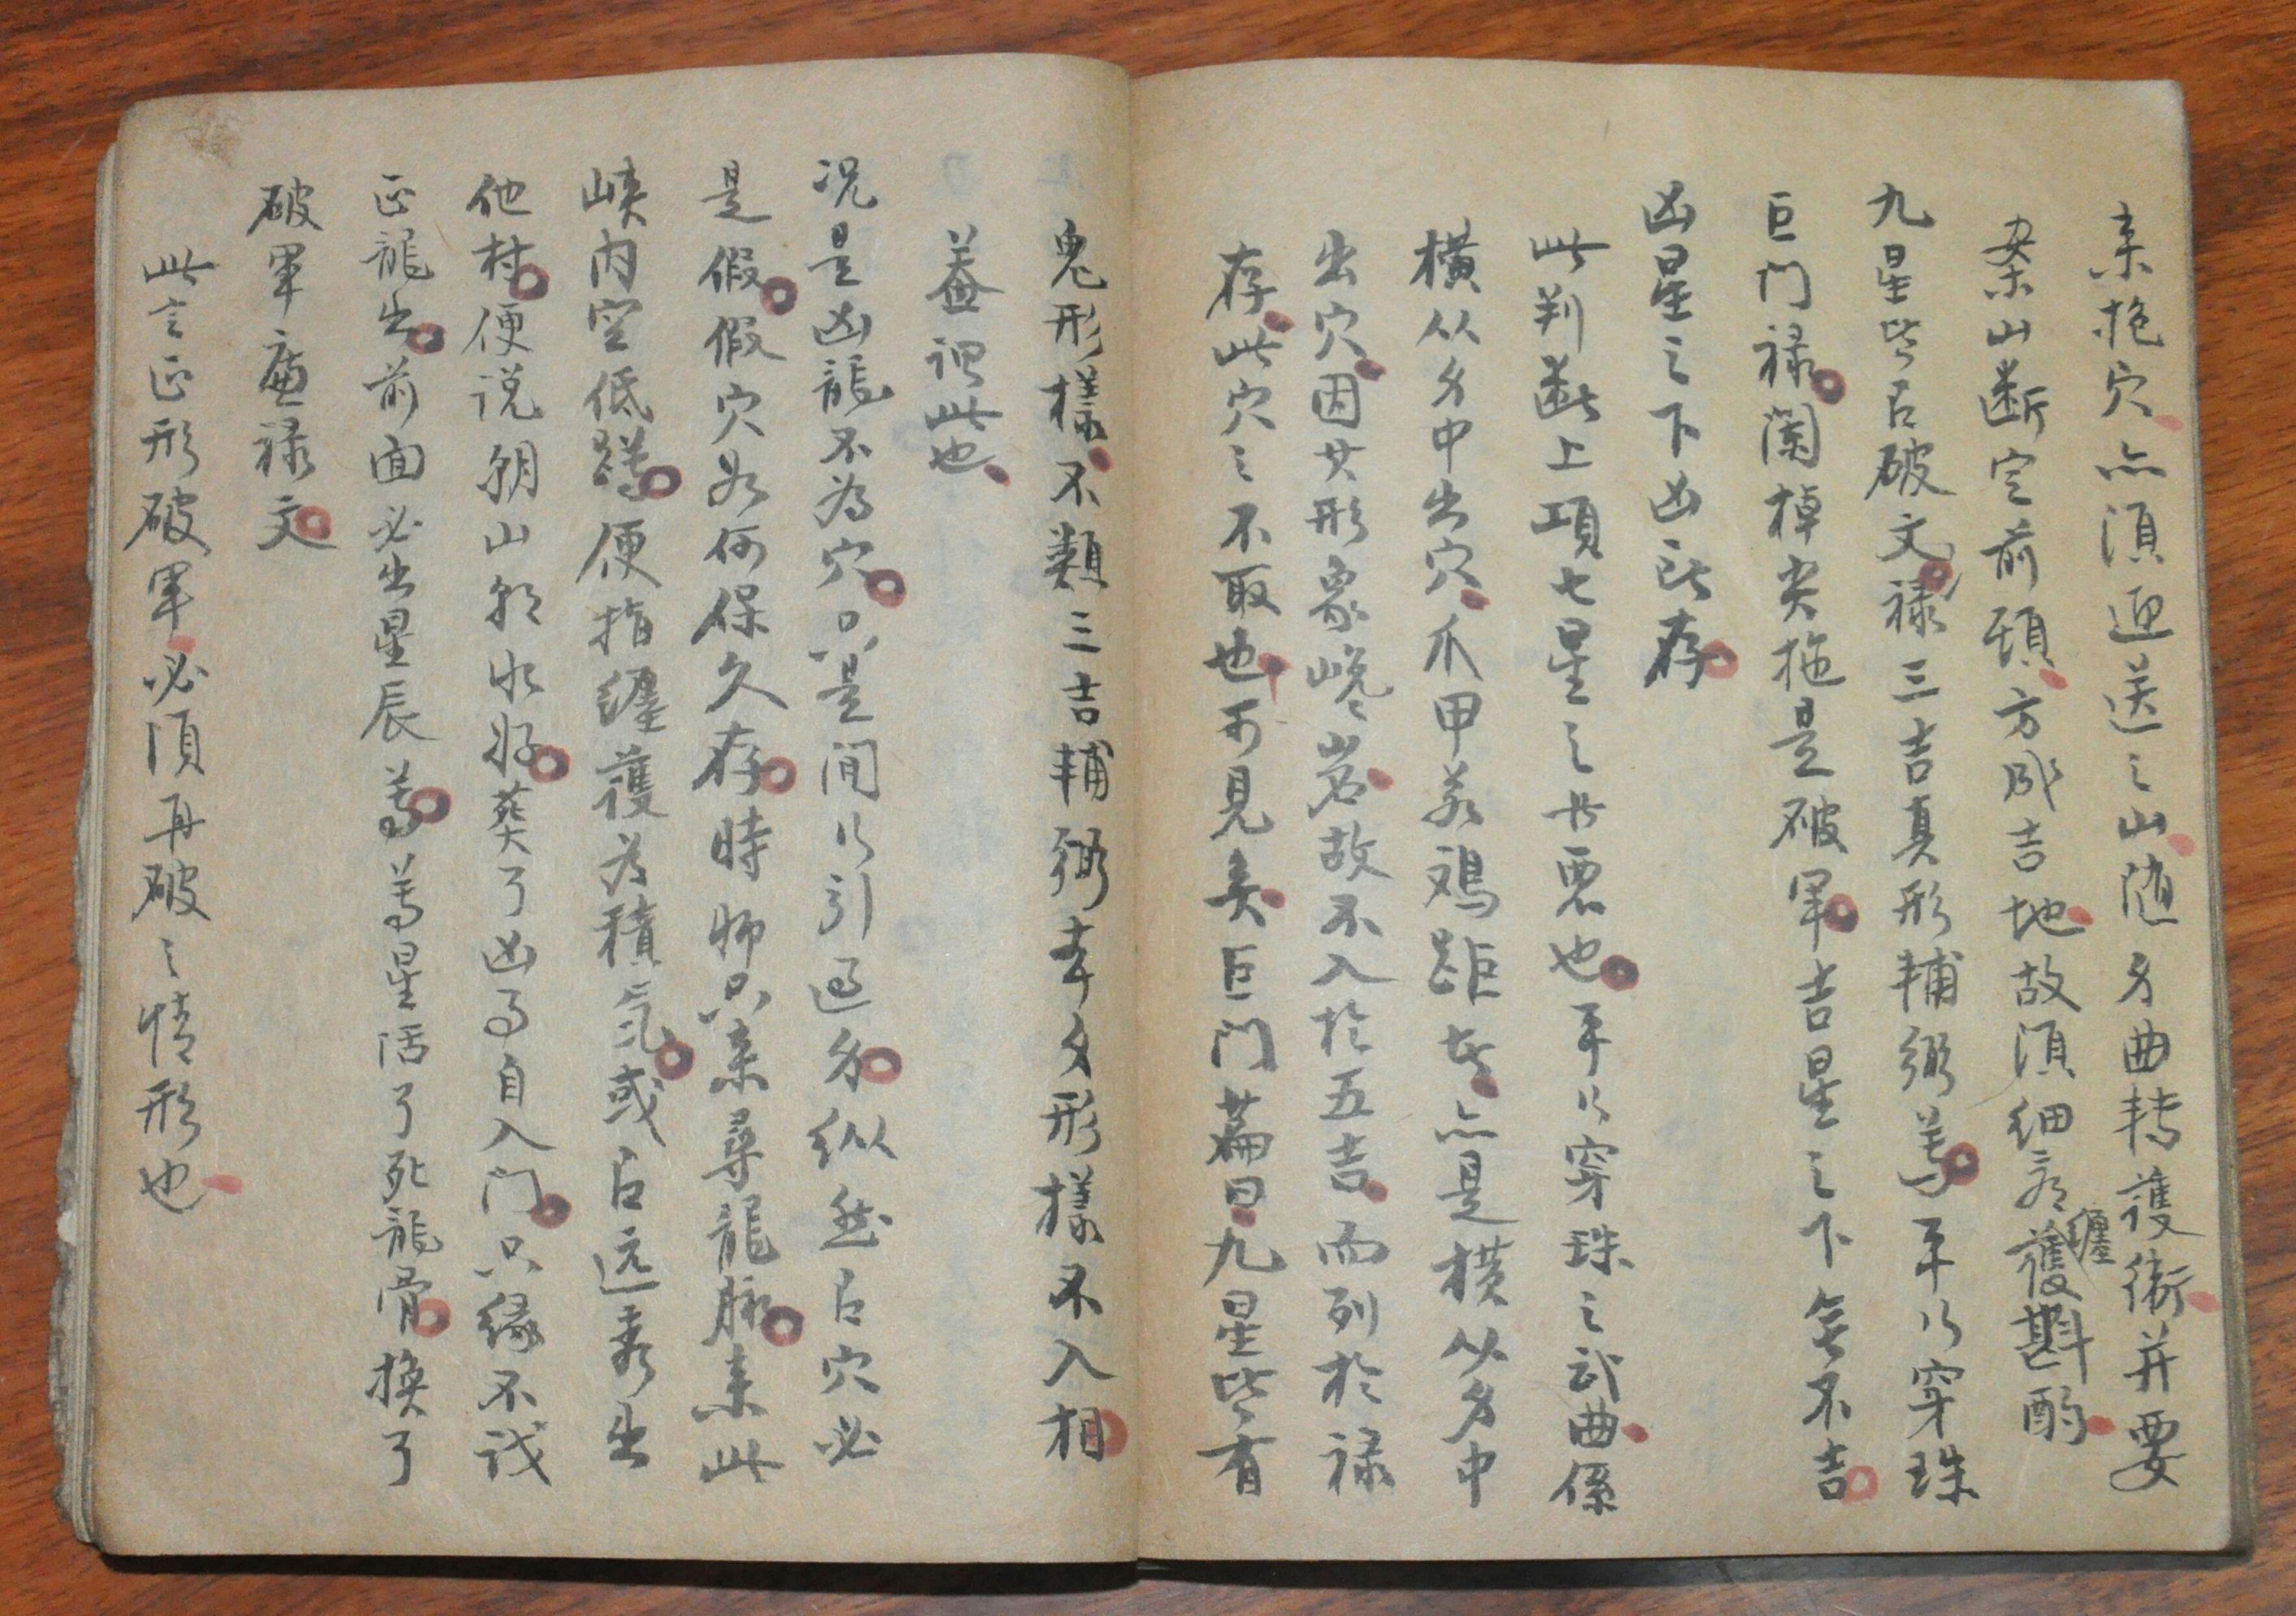 来抱穴亦須迎送之山随身曲转護衛并要
案山断定前頭方成吉地故須細看纏護斟酌
九星皆有破文禄三吉真形輔弼等平行穿珠
巨门禄闌棹尖拖是破軍吉星之下無不吉
凶星之下凶所存
此判断上項七星之美悪也平行穿珠之武曲係
横从身中出穴爪甲若鸡距者亦是横从身中
出穴因其形象巉岩故不入於五吉而列於禄
存此穴之不取也可見矣巨门篇曰九星皆有
鬼形樣不類三吉輔弼牵身形樣不入相
蓋谓此也
况是凶龍不為穴只是间行引过身纵然有穴必
是假假穴如何保久存時师只来尋龍脉来此
峡内空低蹲便指纏護为積气或有远秀出
他村便说朝山朝水好葬了凶事自入门只緣不识
正龍出前面必出星辰等等星活了死龍骨换了
破軍廉禄文
此言正形破軍必須再破之情形也